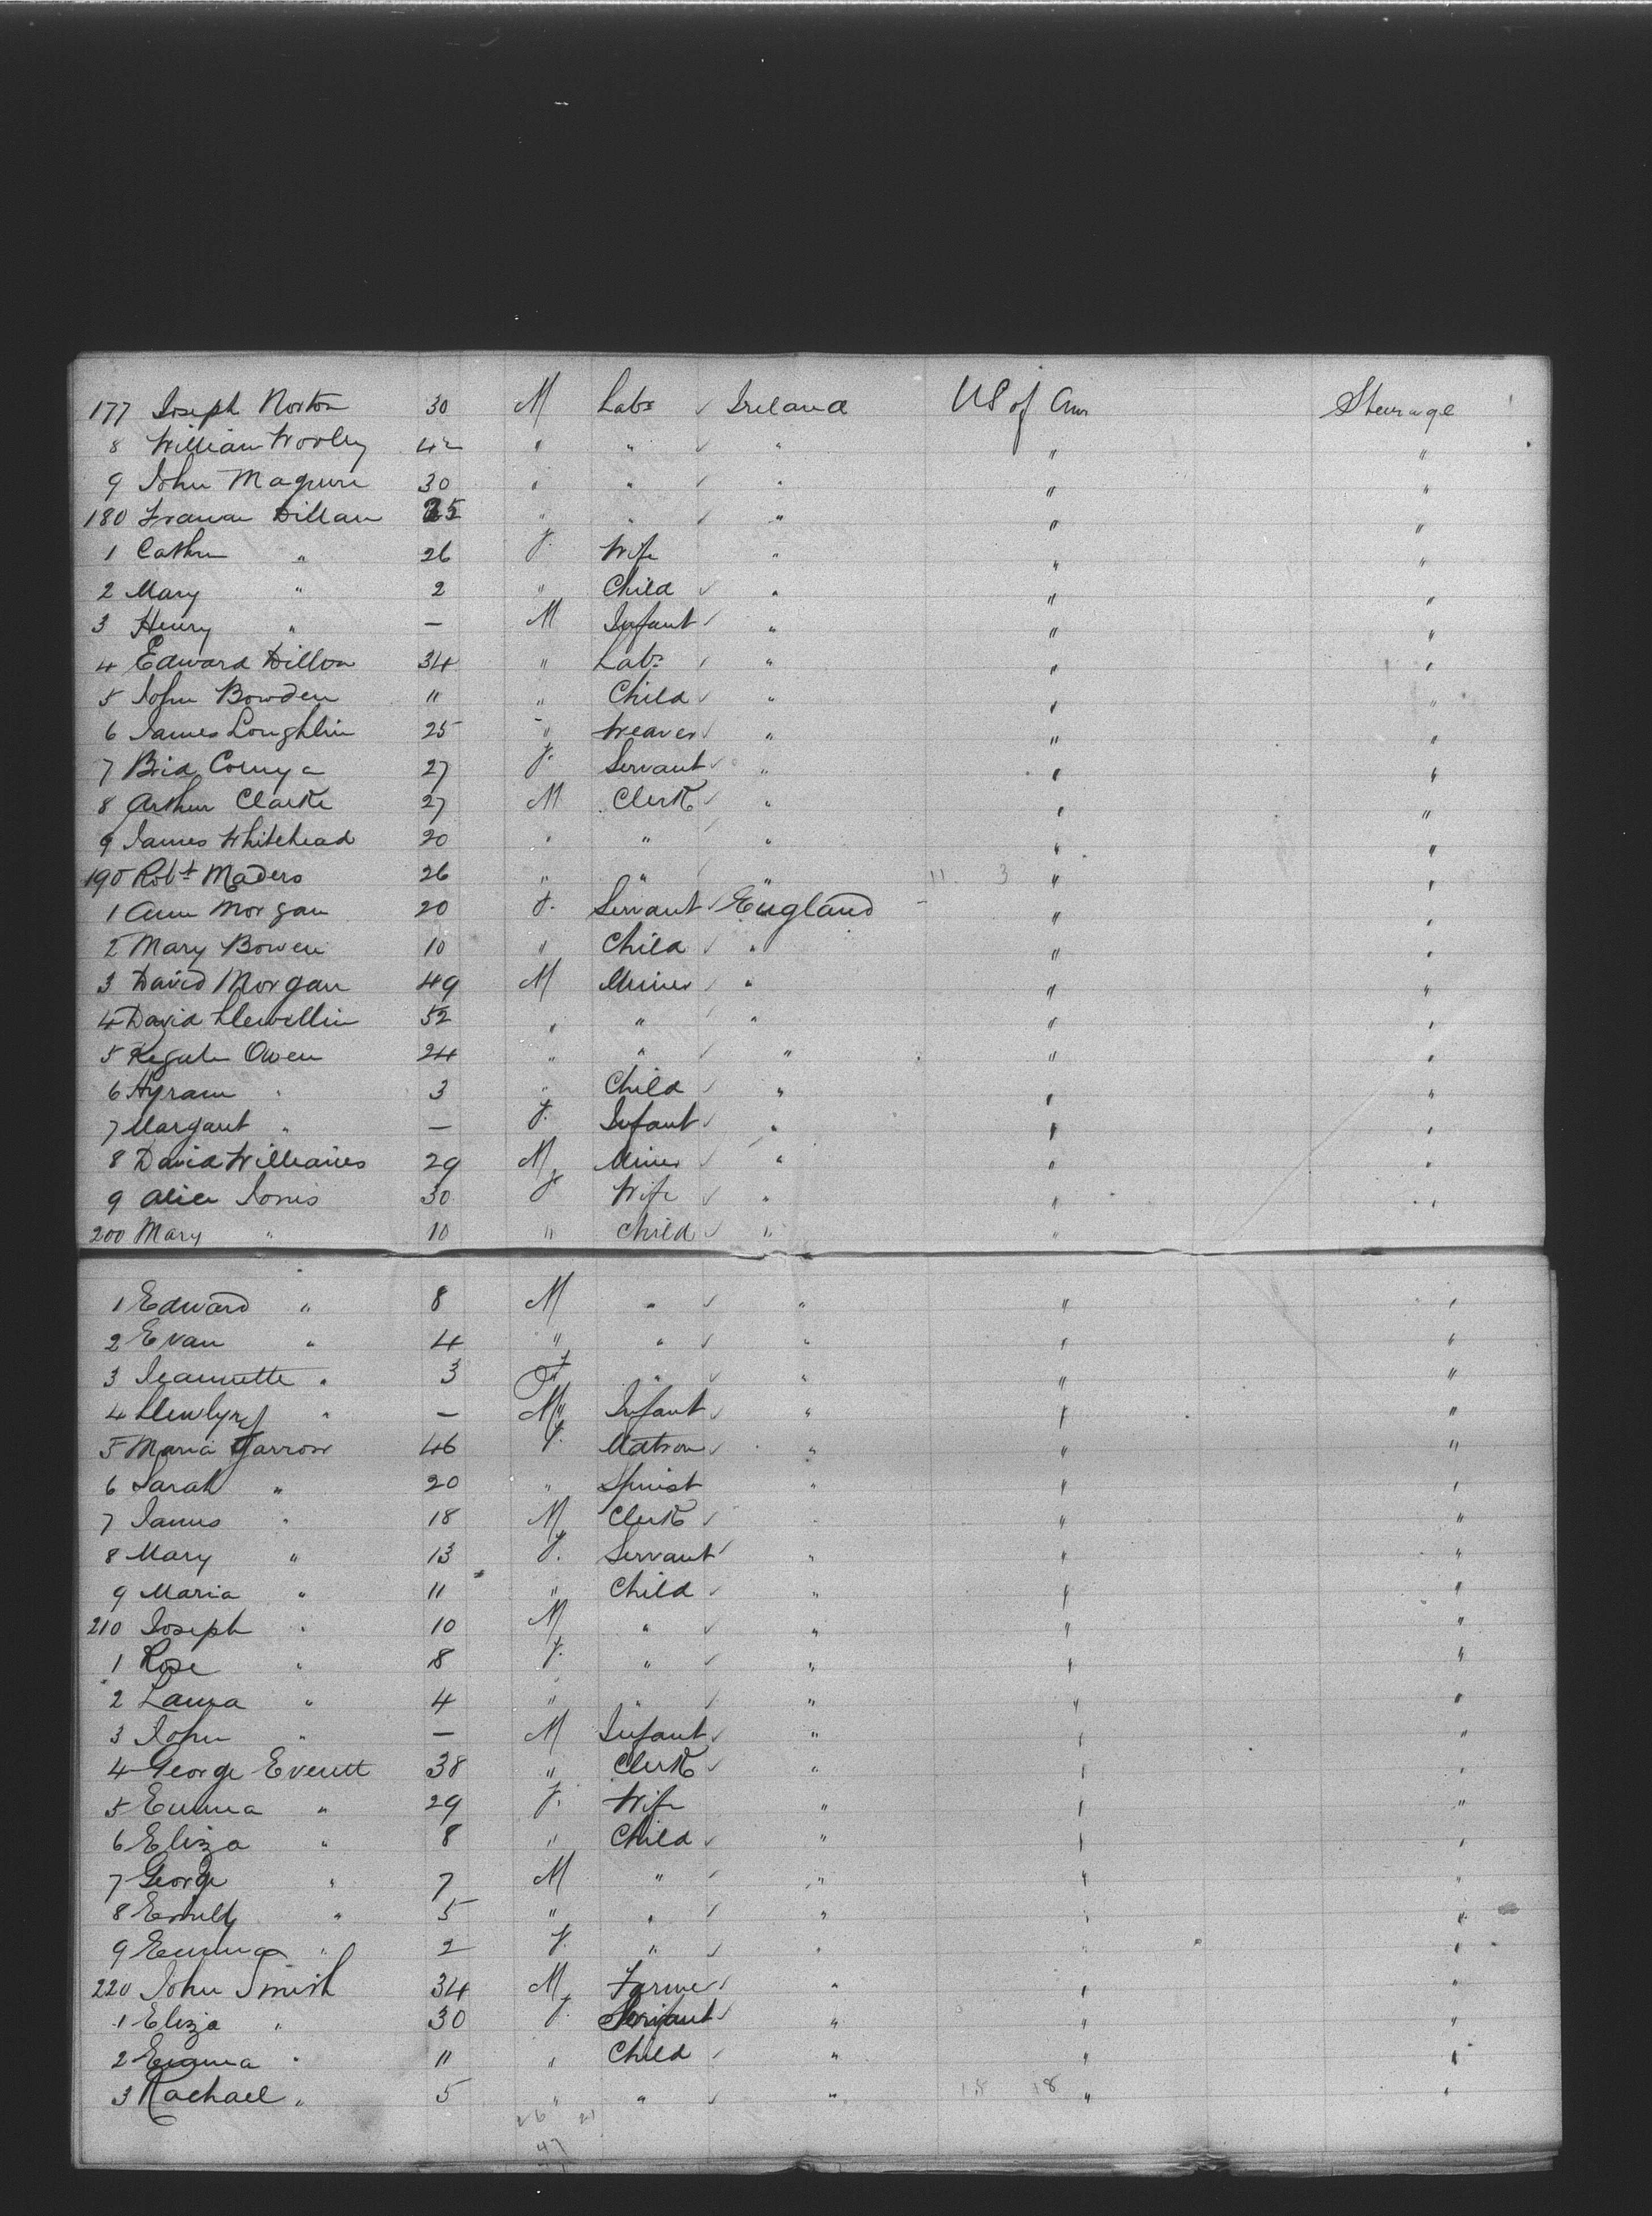 177 Joseph Norton 30 M Labr ✓ Ireland US of Am Steerage
8 William Worley 42 " " ✓ " " "
9 John Maguire 30 " " ✓ " " "
180 Dillan 35 " " ✓ " " "
1 Cathn " 26 F. Wife " " "
2 Mary " 2 " Child ✓ " " "
3 Henry " — M Infant ✓ " " "
4 Edward Dillon 34 " Labr ✓ " " "
5 John Bowden 11 " Child ✓ " " "
6 James Loughlin 25 " Weaver ✓ " " "
7 Brid 27 F. Servant ✓ " " "
8 Arthur Clarke 27 M Clerk ✓ " " "
9 James Whitehead 20 " " ✓ " " "
190 Robt Maders 26 " " ✓ " 11 3 " "
1 Ann Morgan 20 F. Servant ✓ England " "
2 Mary Bowen 10 " Child ✓ " " "
3 David Morgan 49 M Miner ✓ " " "
4 David Llewellin 52 " " ✓ " " "
5 Owen 24 " " ✓ " " "
6 Hyram " 3 " Child ✓ " " "
7 Margaret " — F. Infant ✓ " " "
8 David Williams 29 M Miner ✓ " " "
9 Alice Jones 30 F Wife ✓ " " "
200 Mary " 10 " Child ✓ " " "
1 Edward " 8 M " ✓ " " "
2 Evan " 4 " " ✓ " " "
3 Jeannette " 3 F " ✓ " " "
4 Llewlyn " — M " Infant ✓ " " "
5 Maria Garrow 46 F. Matron ✓ " " "
6 Sarah " 20 " Spinst " " "
7 James " 18 M Clerk ✓ " " "
8 Mary " 13 F. Servant ✓ " " "
9 Maria " 11 " Child ✓ " " "
210 Joseph " 10 M " ✓ " " "
1 Rose " 8 F. " ✓ " " "
2 Laura " 4 " " ✓ " " "
3 John " — M Infant ✓ " " "
4 George Everett 38 " Clerk ✓ " " "
5 Emma " 29 F. Wife " " "
6 Eliza " 8 " Child ✓ " " "
7 George " 7 M " ✓ " " "
8 Emily " 5 " " ✓ " " "
9 Emma " 2 F. " ✓ " " "
220 John Smith 34 M Farmer ✓ " " "
1 Eliza " 30 F. Servant ✓ " " "
2 Emma " 11 " Child ✓ " " "
3 Rachael " 5 " " ✓ " 18 18 " "
26 21
47